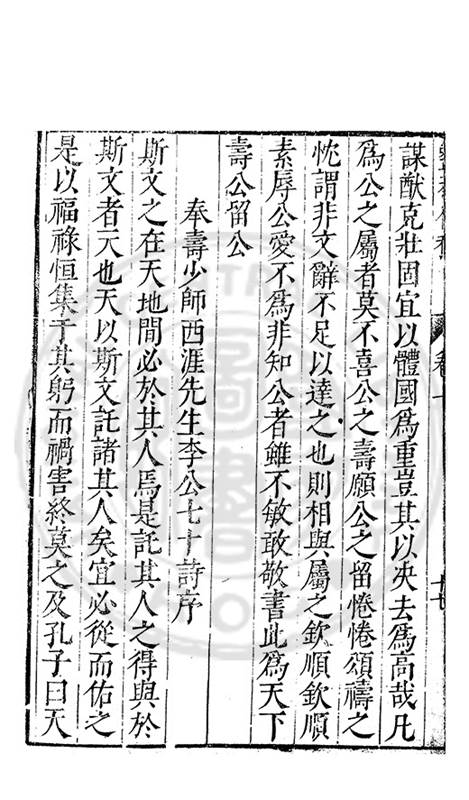 謀猷克壯固宜以體國爲重豈其以決去爲高哉凡
爲公之屬者莫不喜公之壽願公之留惓惓頌禱之
忱謂非文辭不足以達之也則相與屬之欽順欽順
素辱公愛不爲非知公者雖不敏敢敬書此爲天下
壽公留公
奉壽少師西涯先生李公七十詩序
斯文之在天地間必於其人焉是託其人之得與於
斯文者天也天以斯文託諸其人矣宜必從而佑之
是以福祿恒集于其躬而禍害終莫之及孔子曰天